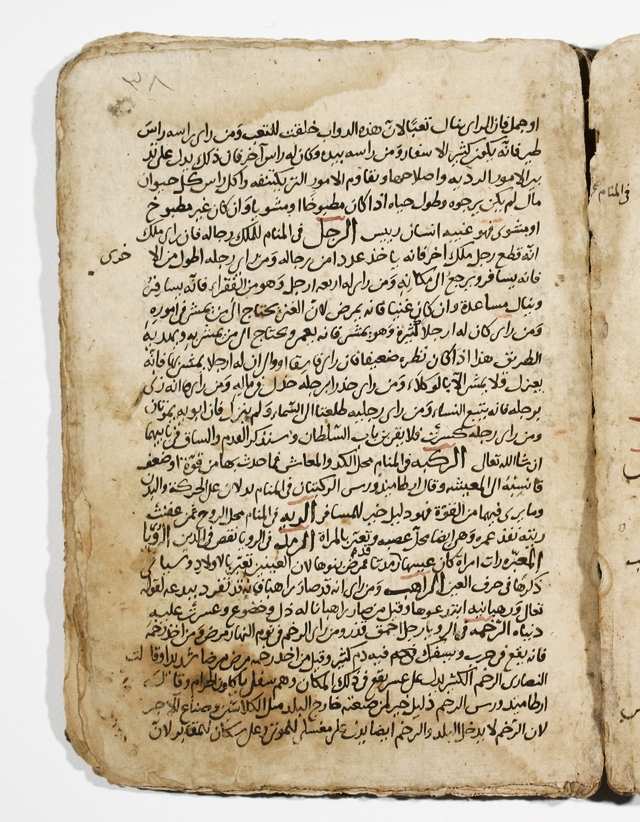 ٣٨
او جمل فان الراي ينال تعبا لان هذه الدواب خلقت للتعب ومن راي راسه راس
طير فانه يكون كثير الاسفار ومن راي راسه بيده وكان له راس آخر فان ذلك يدل على تد
بير الامور الردية واصلاحها ويقاوم الامور التي تكتنفه واكل راس كل حيوان
مال لم يكن يرجوه وطول حياه اذا كان مطبوخا او مشويا وان كان غير مطبوخ
او مشوي فهو غيبة انسان رييس الرجل في المنام للملك رجاله فان راي ملك
انه قطع رجل ملك اخر فانه ياخذ عدد من رجاله ومن راي رجله اطول من الا
خري
فانه يسافر ويرجع الي مكانه ومن راي له اربعه ارجل وهو من الفقراء فانه يسافر
وينال مساعدة وان كان غنيا فانه يمرض لان الغني يحتاج الي من يمشي في اموره
ومن راي كان له ارجلا كثيرة وهو يمشي فانه يعمي ويحتاج الي من يمشي به ويهديه
الطريق هذا اذا كان نظره ضعيفا فان راي او وال ان له ارجلا يمشي بها فانه
يعزل ولا يمشي الا بالوكلا ومن راي خدر رجله خذل في ماله ومن راي انه زنى
برجله فانه يتبع النساء ومن راي رجليه طلعتا الي السماء ولم ينزل فان ابويه يموتان
ومن راي رجله كسرت فلا يقربن باب السلطان وسنذكر القدم والساق في بابهما
ان شا الله تعالي الركبه في المنام محل الكد والمعاش فما حدث بها من قوة او ضعف
فانسبه الي المعيشه وقال ارطاميدورس الركبتان في المنام يدلان علي الحركة والبدن
وما يري فيهما من القوة فهو دليل خير للمسافر الريه في المنام محل الروح فمن عفنت
ريته نفد عمره وهي ايضا محل غصبه وتعبر بالمراة الرمد في الرويا نقص في الدين الرويا
المعبره رات امراة كان عينيها رمدتا فمرض بنوها لان العينين تعبر بالاولاد وسياتي
ذكرها في حرف العين الراهب ومن راي انه قد صار راهبا فانه قد تفرد ببدعه لقوله
تعالي ورهبانيه ابتدعوها وقيل من صار راهبا ناله ذل وخضوع وعسرت عليه
دنياه الرخمه في الرويا رجل احمق قذر ومن راي الرخم في يوم النهار مرض ومن اخذ رخمه
فانه يقع في حرب ويسفك فيه دم كثير وقيل من اخذ رخمه مرض مرضا شديدا وقالت
النصاري الرخم الكثير يدل علي عسكر يقع في ذلك المكان وهم سفل ياكلون الحرام وقال
ارطاميدورس الرخم دليل خير لمن صنعته خارج البلد مثل الكلاسين وصناع الاجر
لان الرخم لا يدخل البلد والرخم ايضا يدل علي مغسلي الموتي وعلي سكان المقابر لان
في المنام